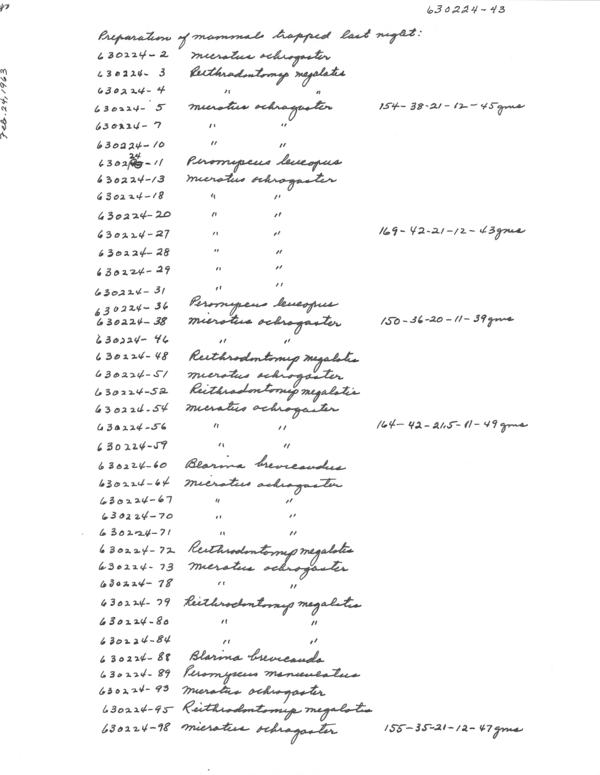 630224-43
Feb. 24, 1963
Preparation of mammals trapped last night:
630224-2 microtus ochrogaster
630224-3 Reithrodontomys megalotis
630224-4 " "
630224-5 microtus ochrogaster 154-38-21-12-45gms
630224-7 " "
630224-10 " "
630224-11 Peromyscus leucopus
630224-13 microtus ochrogaster
630224-18 " "
630224-20 " "
630224-27 " " 169-42-21-12-43gms
630224-28 " "
630224-29 " "
630224-31 " "
630224-36 Peromyscus leucopus
630224-38 microtus ochrogaster 150-36-20-11-39gms
630224-46 " "
630224-48 Reithrodontomys megalotis
630224-51 microtus ochrogaster
630224-52 Reithrodontomys megalotis
630224-54 microtus ochrogaster
630224-56 " " 164-42-21.5-11-49gms
630224-59 " "
630224-60 Blarina brevicaudus
630224-64 microtus ochrogaster
630224-67 " "
630224-70 " "
630224-71 " "
630224-72 Reithrodontomys megalotis
630224-73 microtus ochrogaster
630224-78 " "
630224-79 Reithrodontomys megalotis
630224-80 " "
630224-84 " "
630224-88 Blarina brevicauda
630224-89 Peromyscus maniculatus
630224-93 microtus ochrogaster
630224-95 Reithrodontomys megalotis
630224-98 microtus ochrogaster 155-35-21-12-47gms